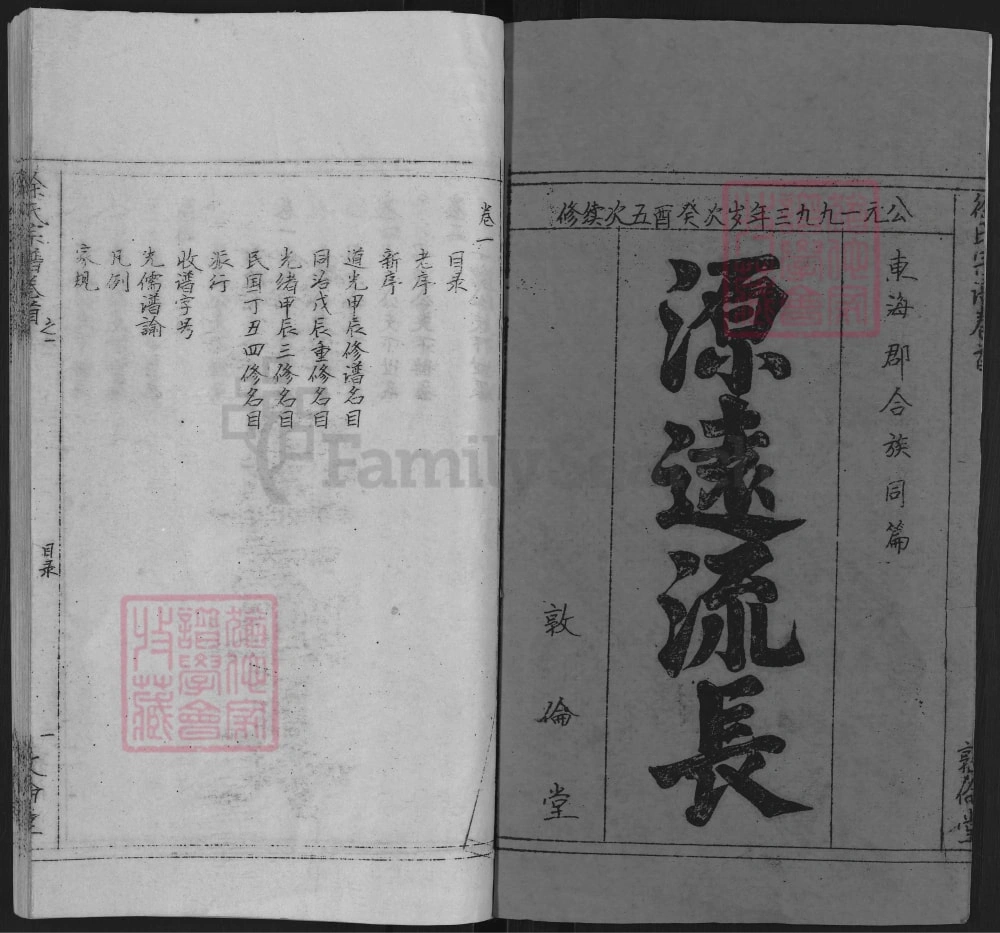 公元一九九三年岁次癸酉五次续修
東海郡合族同篇
源遠流長
敦倫堂
敦倫堂
卷一
目录
老序
新序
道光甲辰修谱名目
同治戊辰重修名目
光绪甲辰三修名目
民国丁丑四修名目
派行
收谱字号
先儒谱谕
凡例
家规
徐氏宗譜卷首之一
目录
一
FamilySearch
譜學會
收藏